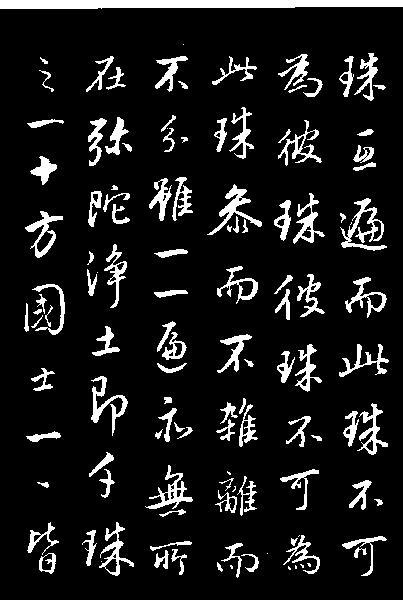 珠互遍而此珠不可
為彼珠彼珠不可為
此珠叅而不雜離而
不分雖一一遍亦無所
在弥陀淨土即千珠
之一十方國土一丶皆